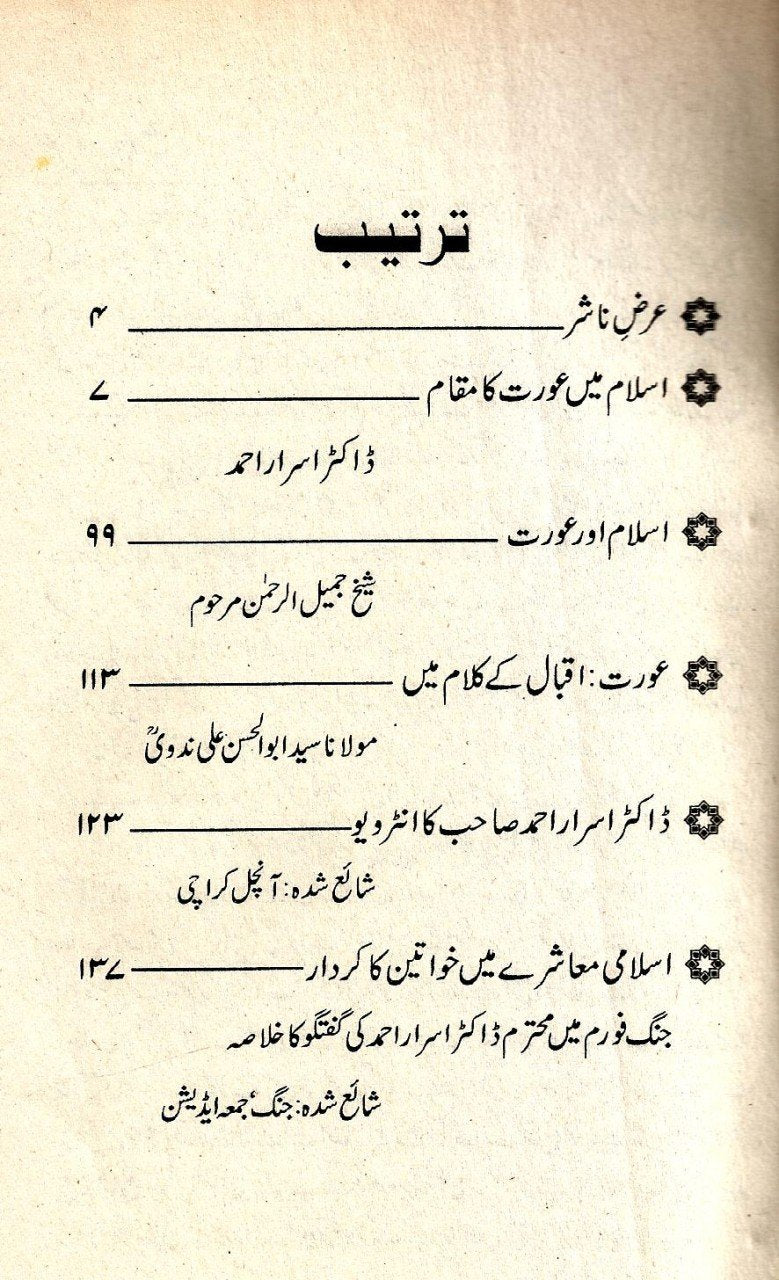 ترتیب
عرضِ ناشر ۴
اسلام میں عورت کا مقام ۷
ڈاکٹر اسرار احمد
اسلام اور عورت ۹۹
شیخ جمیل الرحمٰن مرحوم
عورت: اقبال کے کلام میں ۱۱۳
مولانا سید ابوالحسن علی ندویؒ
ڈاکٹر اسرار احمد صاحب کا انٹرویو ۱۲۳
شائع شدہ: آنچل کراچی
اسلامی معاشرے میں خواتین کا کردار ۱۳۷
جنگ فورم میں محترم ڈاکٹر اسرار احمد کی گفتگو کا خلاصہ
شائع شدہ: جنگ، جمعہ ایڈیشن